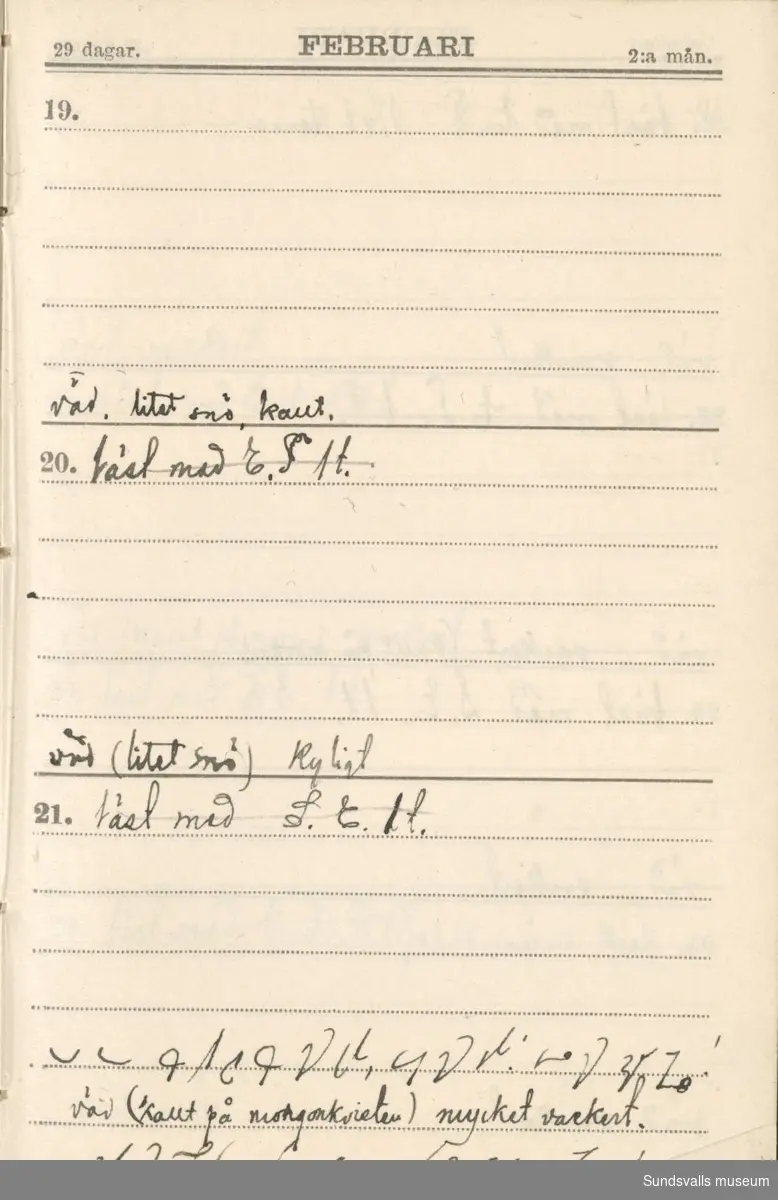 29 dagar. FEBRUARI 2:a mån.
19.
väd. litet snö, kallt.
20. läst med E. S. H.
väd (litet snö) kyligt
21. läst med S. E. H.
väd (kallt på morgonkvisten) mycket vackert.
Sundsvalls museum